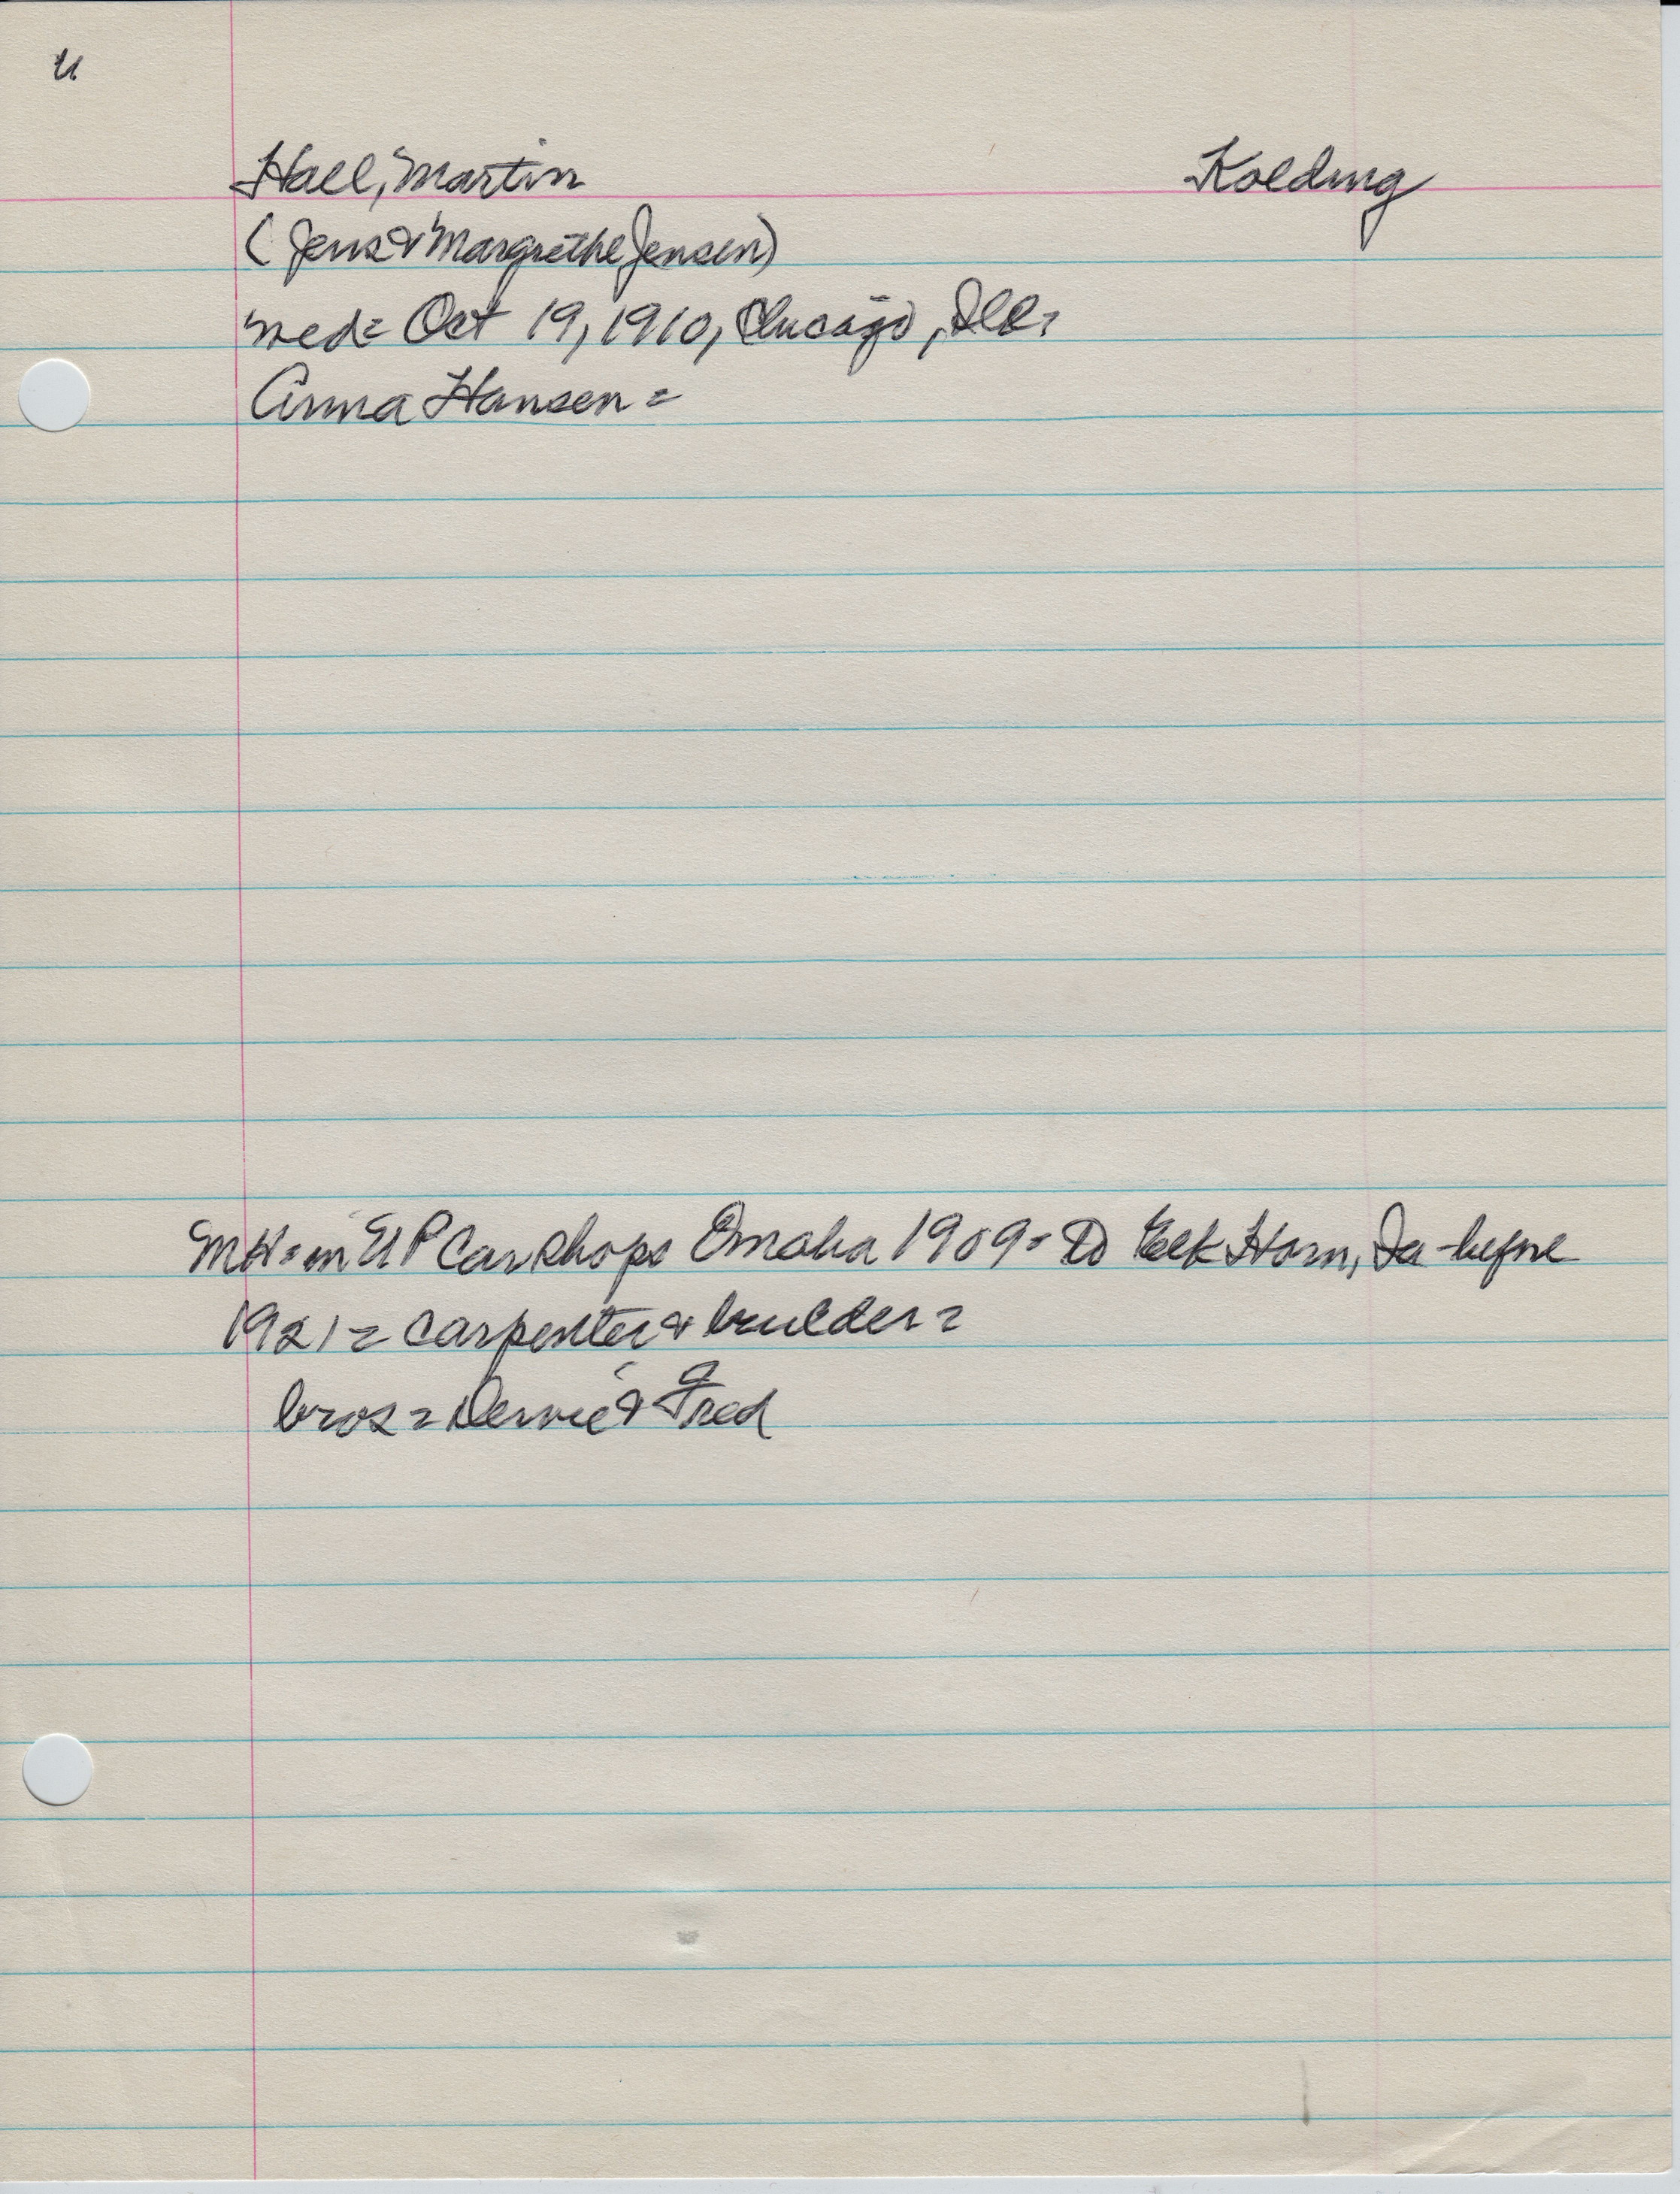 u
Hall, Martin Kolding
(Jens & Margrethe Jensen)
wed= Oct 19, 1910, Chicago, Ill=
Anna Hansen =
MH= in UP Car Shops Omaha 1909= to Elk Horn, Ia - before
1921 = carpenter & builder =
bros = & Fred